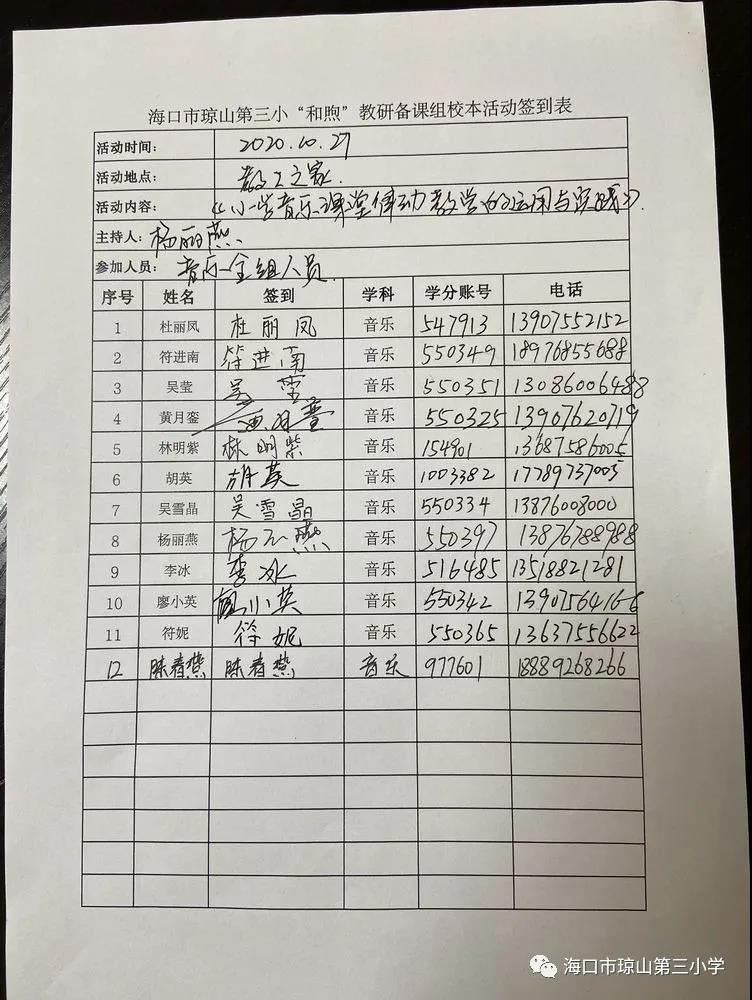 海口市琼山第三小“和煦”教研备课组校本活动签到表
活动时间： 2020.10.27
活动地点： 教工之家.
活动内容： 《小学音乐课堂律动教学的运用与实践》.
主持人： 杨丽燕
参加人员： 音乐全组人员.
序号 姓名 签到 学科 学分账号 电话
1 杜丽凤 杜丽凤 音乐 547913 13907552152
2 符进南 符进南 音乐 550349 18976855688
3 吴莹 吴莹 音乐 550351 13086006488
4 黄月銮 音乐 550325 13907620719
5 林明紫 林明紫 音乐 154901 13687586005
6 胡英 胡英 音乐 1003382 17789737005
7 吴雪晶 吴雪晶 音乐 550334 13876008000
8 杨丽燕 杨丽燕 音乐 550397 13876788988
9 李冰 李冰 音乐 516485 13518821281
10 廖小英 廖小英 音乐 550342 13907564166
11 符妮 符妮 音乐 550365 13637556622
12 陈春燕 陈春燕 音乐 977601 18889268266
海口市琼山第三小学